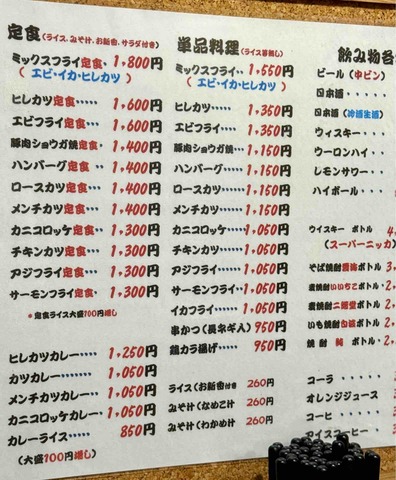 定食(ライス、みそ汁、お新香、サラダ付き)
ミックスフライ定食 1,800円
(エビ・イカ・ヒレカツ)
ヒレカツ定食····· 1,600円
エビフライ定食··· 1,600円
豚肉ショウガ焼定食· 1,400円
ハンバーグ定食·· 1,400円
ロースカツ定食··· 1,400円
メンチカツ定食··· 1,400円
カニコロッケ定食·· 1,300円
チキンカツ定食··· 1,300円
アジフライ定食··· 1,300円
サーモンフライ定食· 1,300円
*定食ライス大盛100円増し
ヒレカツカレー····· 1,250円
カツカレー······ 1,050円
メンチカツカレー·· 1,050円
カニコロッケカレー· 1,050円
カレーライス····· 850円
(大盛100円増し)
単品料理(ライス等無し)
ミックスフライ·· 1,550円
(エビ・イカ・ヒレカツ)
ヒレカツ····· 1,350円
エビフライ···· 1,350円
豚肉ショウガ焼··· 1,150円
ハンバーグ···· 1,150円
ロースカツ···· 1,150円
メンチカツ···· 1,150円
カニコロッケ···· 1,050円
チキンカツ···· 1,050円
アジフライ···· 1,050円
サーモンフライ··· 1,050円
イカフライ···· 1,050円
串かつ(長ネギ入) 950円
鶏カラ揚げ···· 950円
ライス(お新香付き 260円
みそ汁(なめこ汁 260円
みそ汁(わかめ汁 260円
飲み物各
ビール(中ビン)
日本酒·····
日本酒(冷酒生酒)
ウィスキー····
ウーロンハイ···
レモンサワー···
ハイボール····
ウイスキー ボトル 4,
(スーパーニッカ)
そば焼酎雲海ボトル 3,
麦焼酎いいちこボトル· 2,
麦焼酎二階堂ボトル 2,
いも焼酎白波ボトル· 2,
焼酎 純 ボトル· 2,
コーラ ·····
オレンジジュース
コーヒー ····
アイスコーヒー · 3